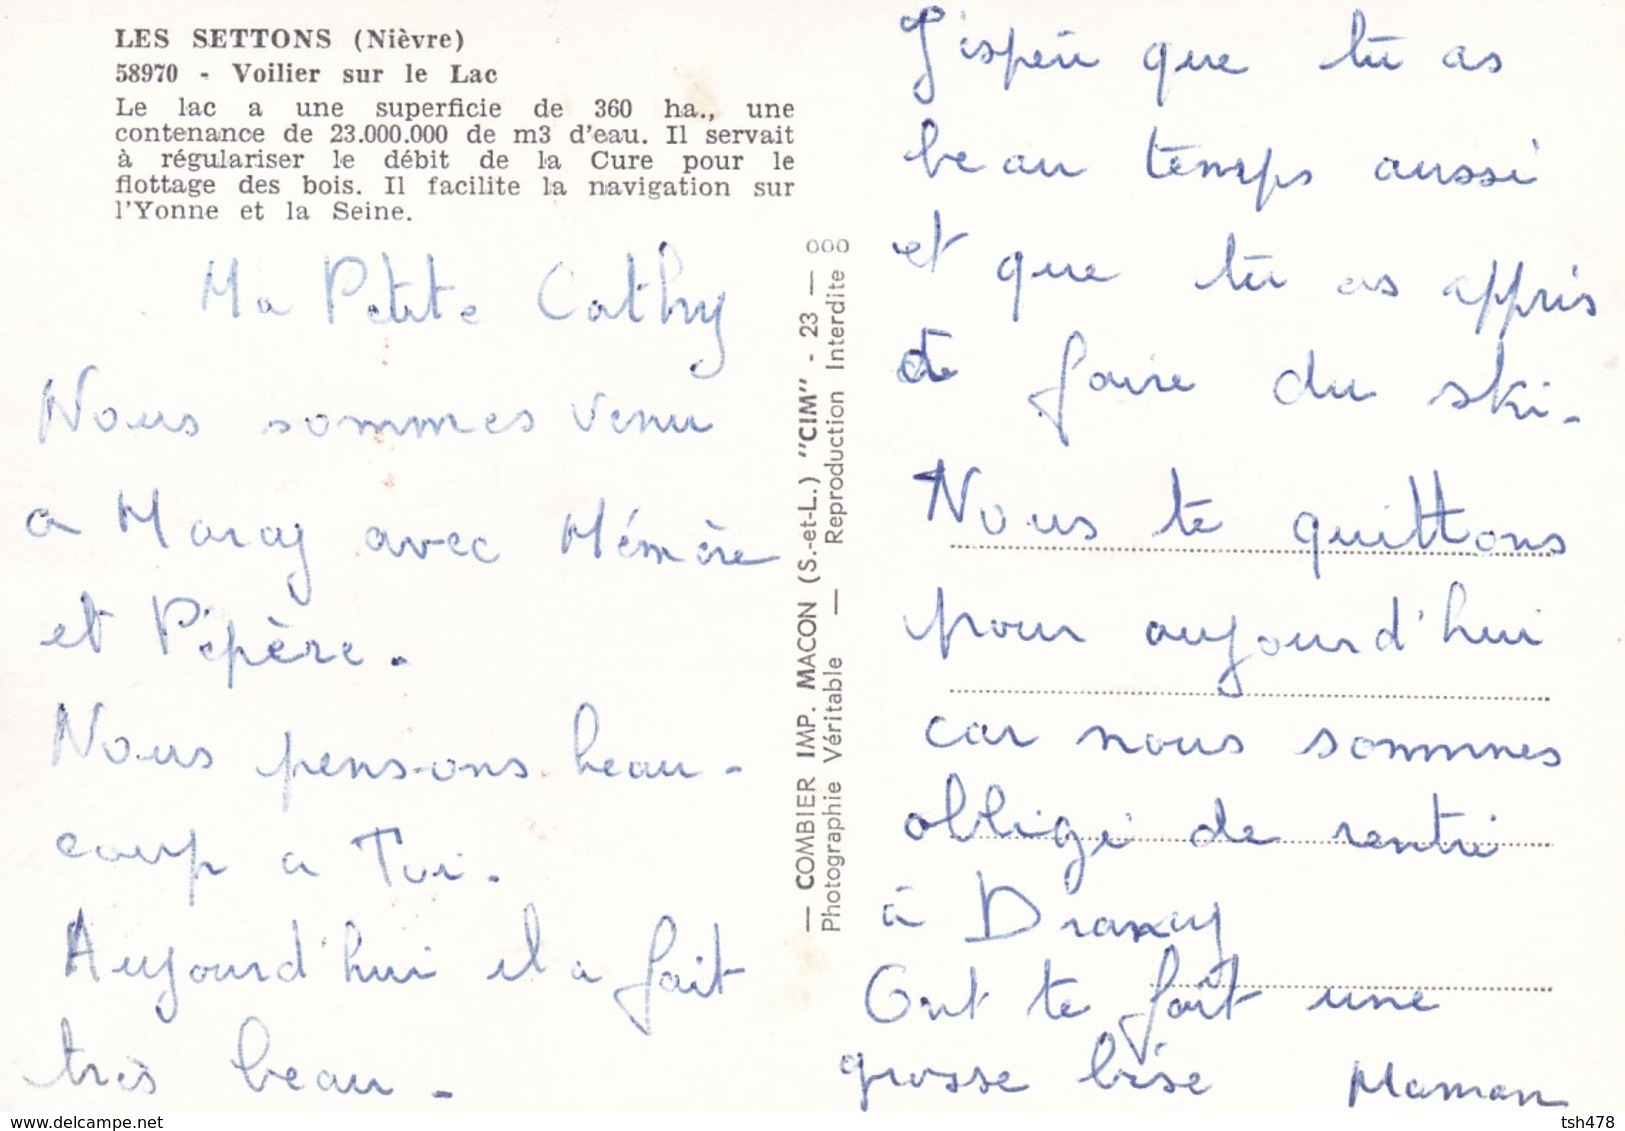 LES SETTONS (Nièvre)
58970 - Voilier sur le Lac
Le lac a une superficie de 360 ha., une
contenance de 23.000.000 de m3 d'eau. Il servait
à régulariser le débit de la Cure pour le
flottage des bois. Il facilite la navigation sur
l'Yonne et la Seine.
Ma Petite Cathy
Nous sommes venu
a Maray avec Mémère
et Pépère.
Nous pensons beau-
coup a Toi.
Aujourd'hui il a fait
très beau.
— COMBIER IMP. MACON (S.-et-L.) "CIM" - 23 — 000
Photographie Véritable — Reproduction Interdite 0
J'espèri que tu as
beau temps aussi
et que tu as appris
de faire du ski.
Nous te quittons
pour aujourd'hui
car nous sommes
obligé de rentré
à Dracy
Ont te fait une
grosse bise Maman
tsh478